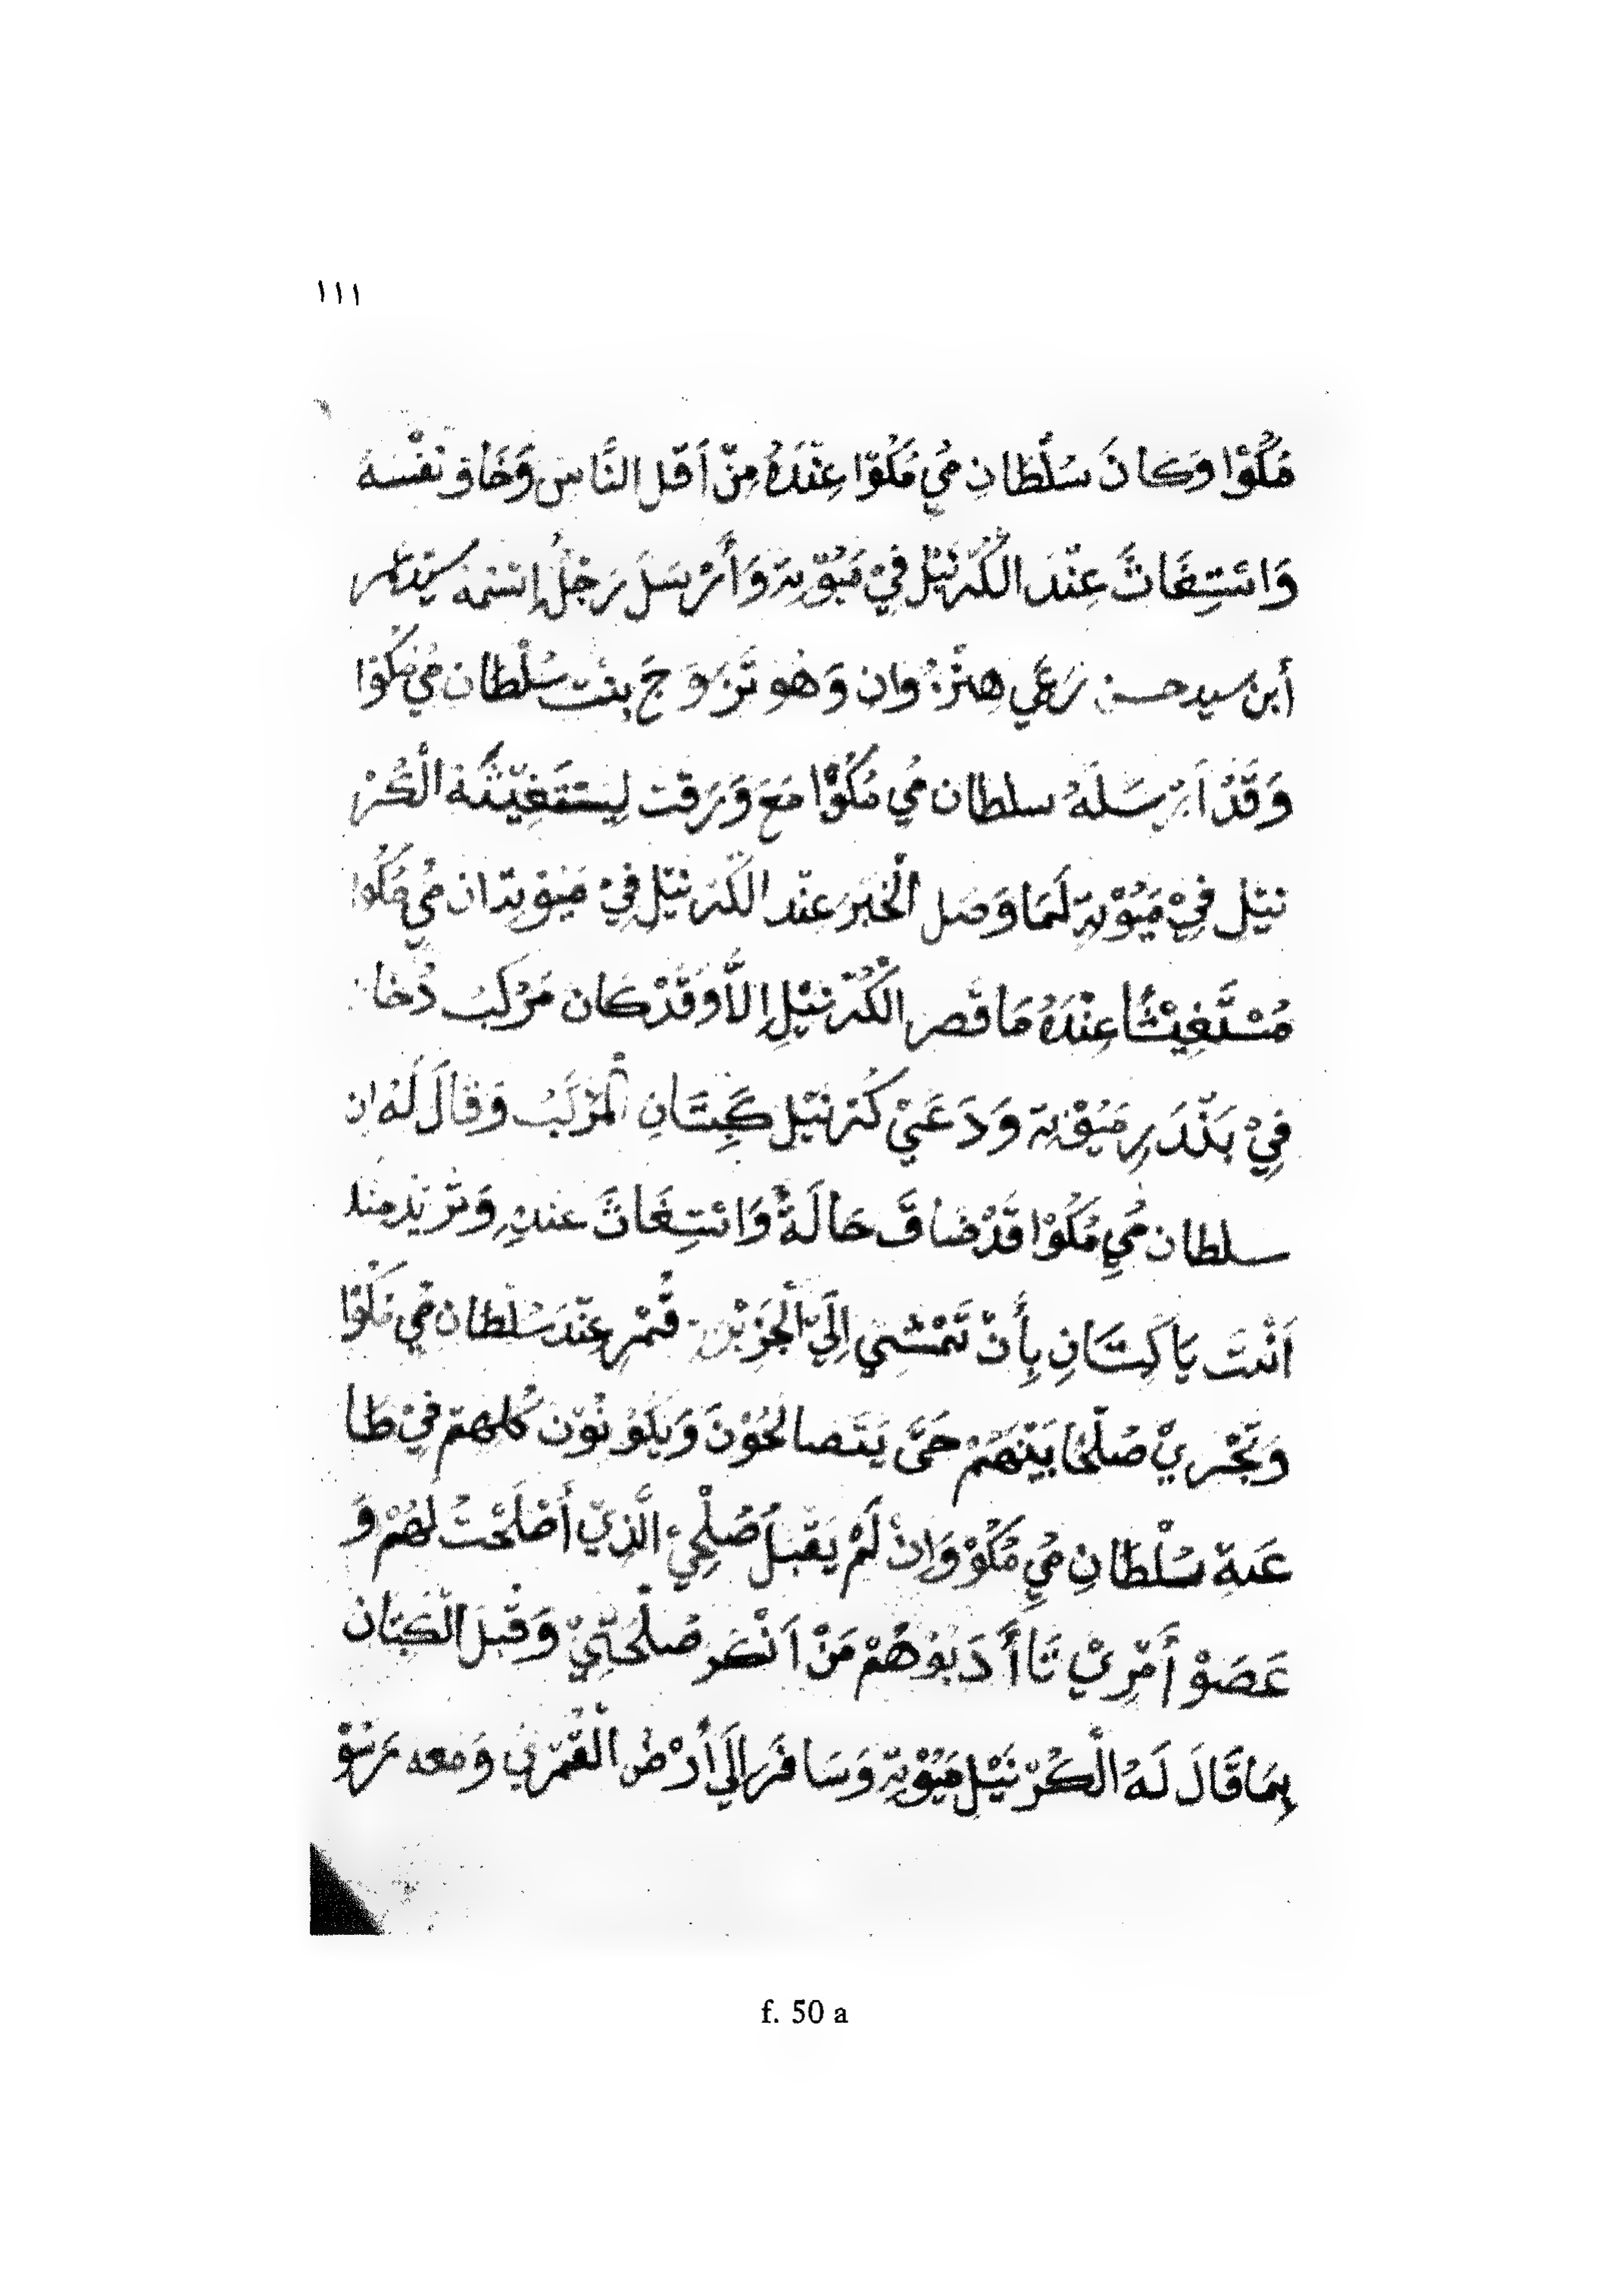 ١١١
مُكُوْا وَكَانَ سُلْطَانِ مُيِ مُكُوْا عِنْدَهُ مِنْ أَقَلِ النَّاسِ وَخَافَ نَفْسَهُ
وَائْسْتِغَاثَ عِنْدَ الْكُرْنَيْلِ فِيْ مَيُوْتَةِ وَأَرْسَلَ رَجُلُ إِسْمُهُ سَيِّد
أبن سيد حسن هِنْزُوَان وَهُوَ تَزَوَّجَ بِنْتَ سُلْطَان مُيِ مُكُوْا
وَقَدْ اَرْسَلَهُ سلطان مُيِ مُكُوْا مَعَ وَرَقَتْ لِيَسْتَغِيْثَهُ الْكُرْ
نَيْلِ فِيْ مَيُوْتَةِ لَمَا وَصَل الْخَبَرَ عِنْدَ الْكُرْنَيْلِ فِيْ مَيُوْتِةَ ان مُيِ مُكُوا
مُسْتَغِيْثًا عِنْدَهُ مَا قَصر الْكُرْنَيْلِ إِلاَّ وَقَدْ كَان مَرْكَبُ دُخَان
فِيْ بَنْدَرِ مَيُوْتَة وَدَعَيْ كُرْنَيْل كَبِتَانِ الْمَرْكَبُ وَقَالَ لَهُ ان
سلطان مُيِ مُكُوْا قَدْ ضَاقَ حَالَةُ وَائْسْتِغَاثَ عندي وَتُرِيْد منك
اَنْتَ يَا كَبِتَانِ بِأَنْ تَمْشِيْ إِلَيْ الْجَزْيْرَة فَتَمُرِ عِنْدَ سُلْطَان مُيِ مُكُوْا
وَتَجْرِيْ صُلْحًا بَيْنَهُمْ حَتَّى يَتَصالَحُوْنَ وَيَكُوْنُوْن كُلهمْ فِيْ طَا
عَة سُلْطَانِ مُيِ مُكُوْ وَاِنْ لَمْ يَقْبَلُ صُلْحِيْ الَّذِيْ أَصْلَحْتُ لَهُمْ وَ
عَصَوْ أَمْرِيْ تَا أَدَبُوْهُمْ مَنْ اَنْكَر صُلْحَتِيْ وَقَبِلَ الْكَبِتَان
بِمَا قَالَ لَهُ الْكُرْنَيْلِ مَيُوْتَة وَسَافَرَ إِلَيَ أَرْضُ الْقُمْرِيْ وَمعه
f. 50 a